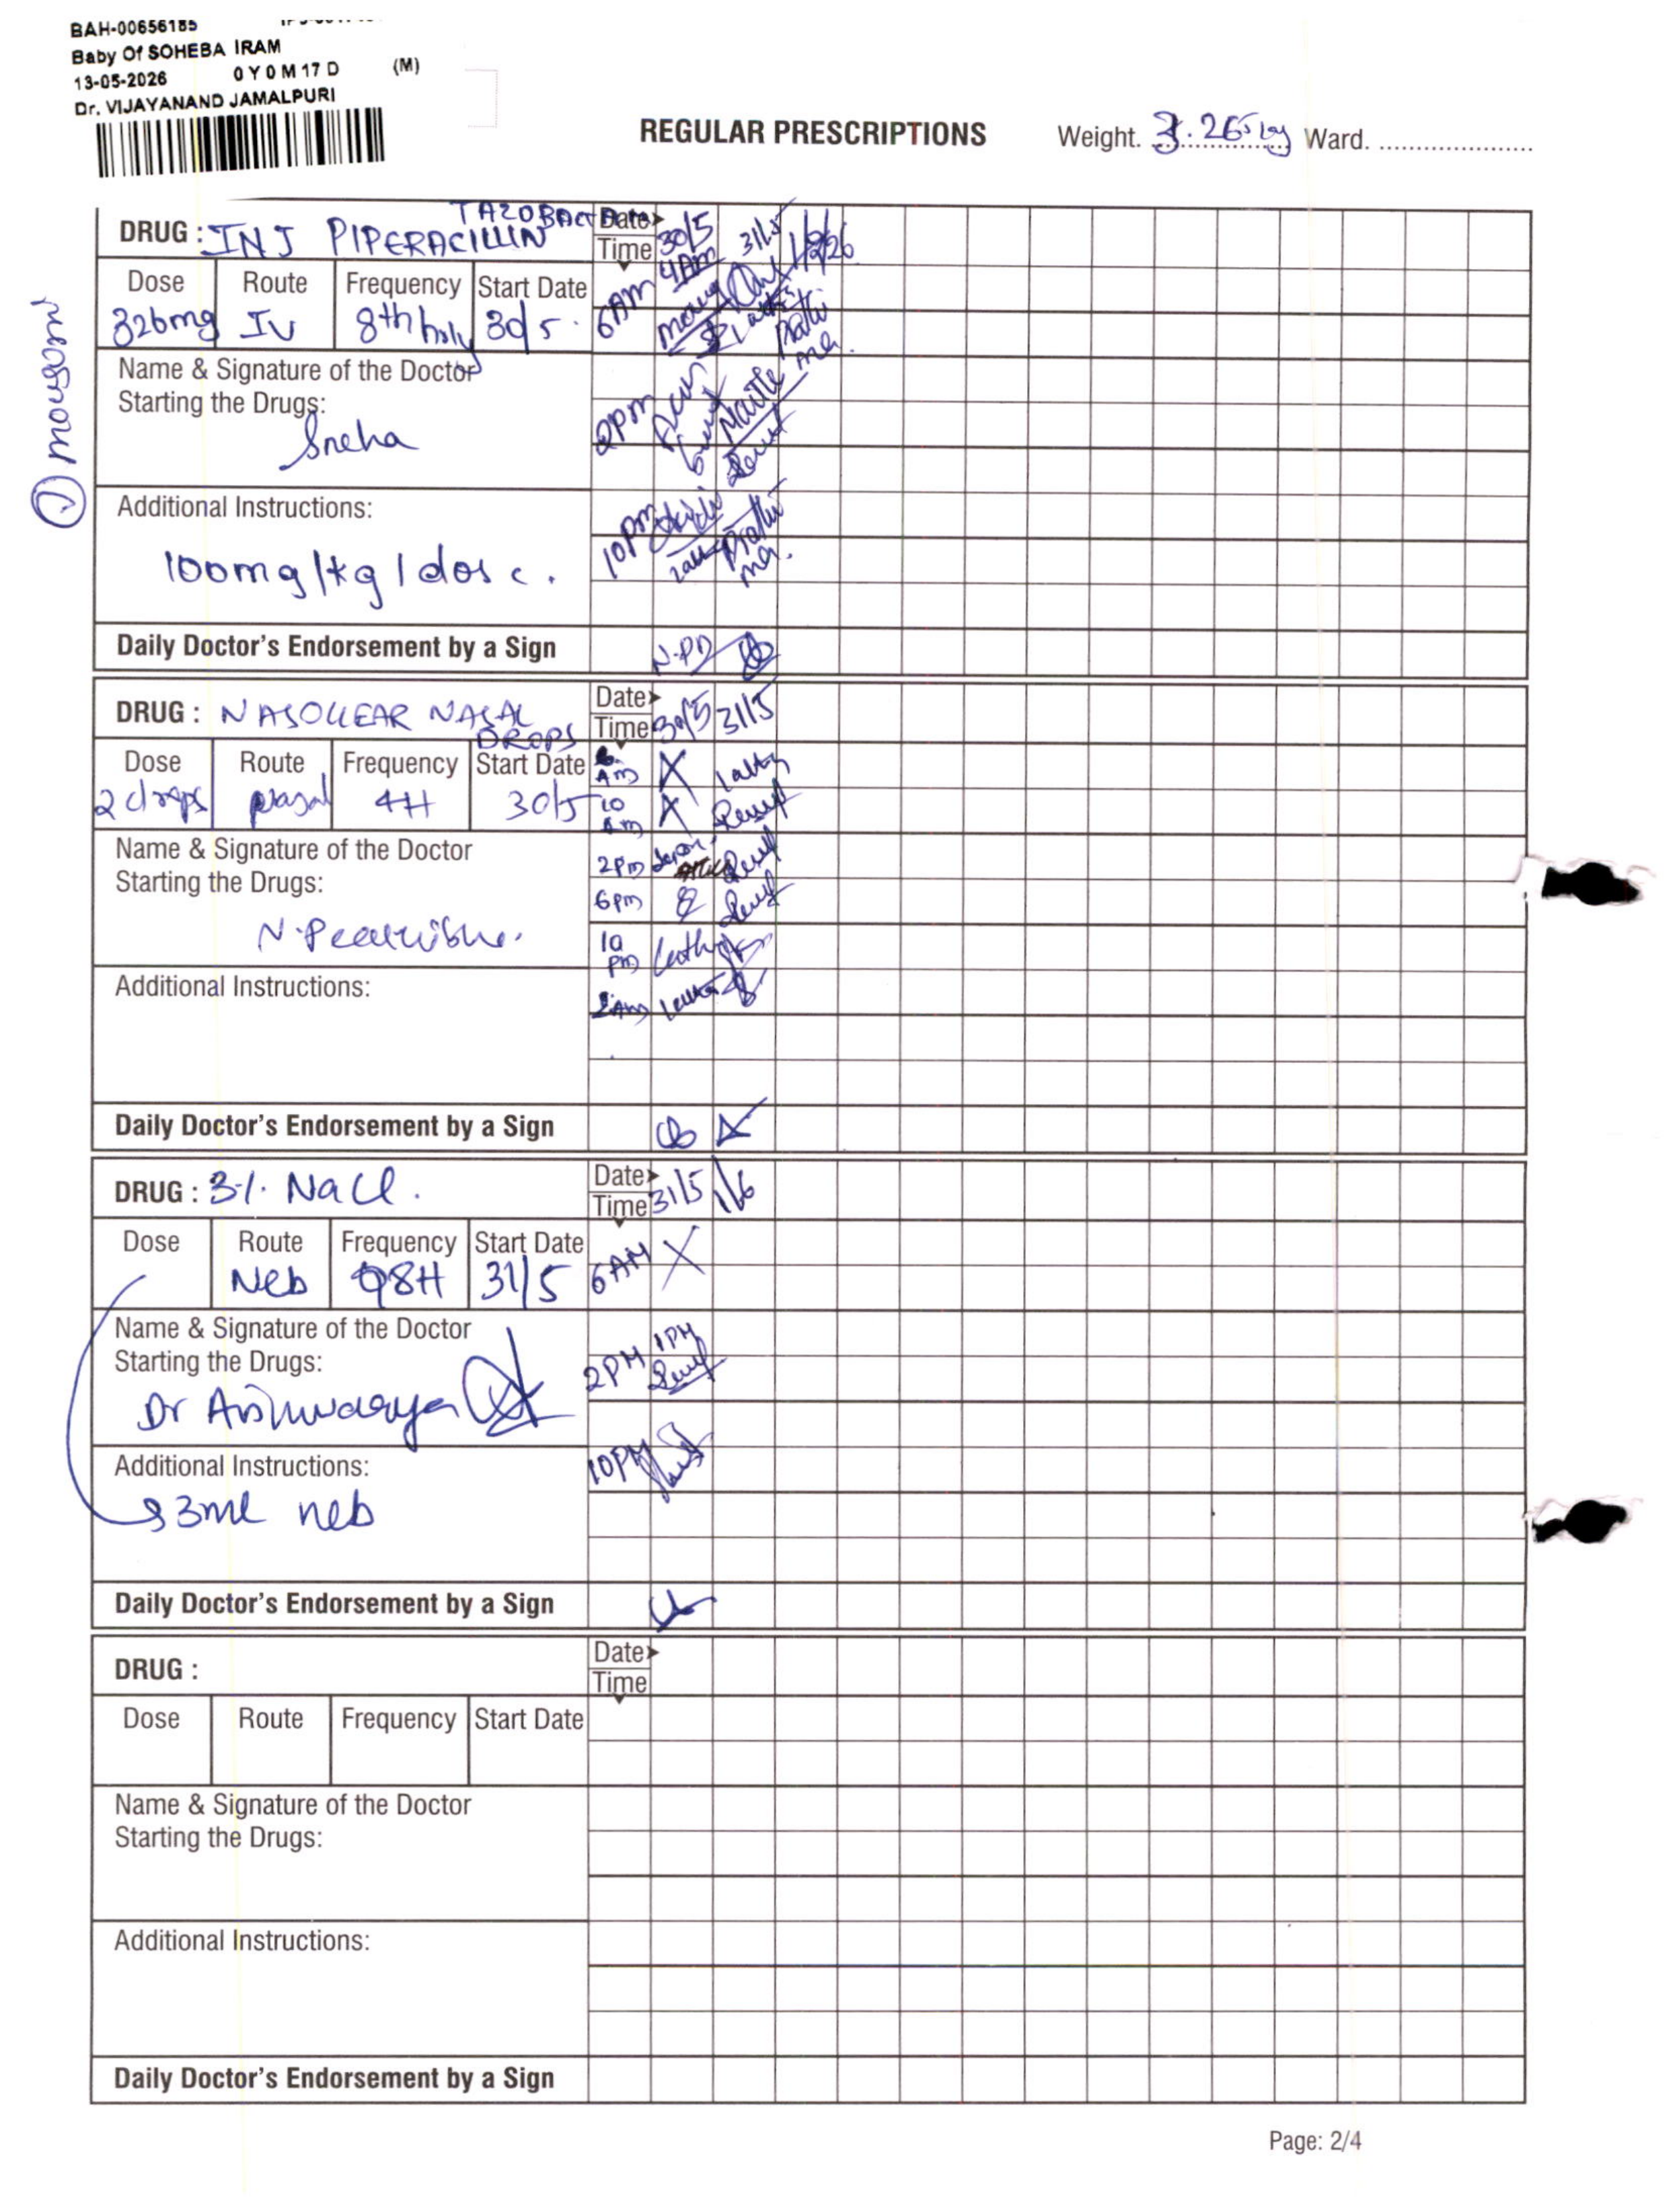 BAH-00656185
Baby Of SOHEBA IRAM
13-05-2026 0 Y 0 M 17 D (M)
Dr. VIJAYANAND JAMALPURI
REGULAR PRESCRIPTIONS Weight. 3.265 kg Ward.
monogram
TAZOBACTAM
DRUG : INJ PIPERACILLIN
Date 30/5 31/5
Time 4AM
Dose Route Frequency Start Date
326mg IV 8th hrly 30/5
6AM
Name & Signature of the Doctor
Starting the Drugs:
Sneha
2pm
Additional Instructions:
100mg/kg/dose.
10pm
Daily Doctor's Endorsement by a Sign
N.PD
DRUG : NASOCLEAR NASAL
DROPS
Date 30/5 31/5
Time
Dose Route Frequency Start Date
2 drops nasal 4H 30/5
Am X
10 Am X
Name & Signature of the Doctor
Starting the Drugs:
2pm
6pm
10 pm
Additional Instructions:
2Am
Daily Doctor's Endorsement by a Sign
DRUG : 3% NaCl.
Date 31/5 1/6
Time
Dose Route Frequency Start Date
Neb Q8H 31/5
6AM X
Name & Signature of the Doctor
Starting the Drugs:
Dr Aishwarya
2PM 1PM
Additional Instructions:
3ml neb
10PM
Daily Doctor's Endorsement by a Sign
DRUG :
Date
Time
Dose Route Frequency Start Date
Name & Signature of the Doctor
Starting the Drugs:
Additional Instructions:
Daily Doctor's Endorsement by a Sign
Page: 2/4